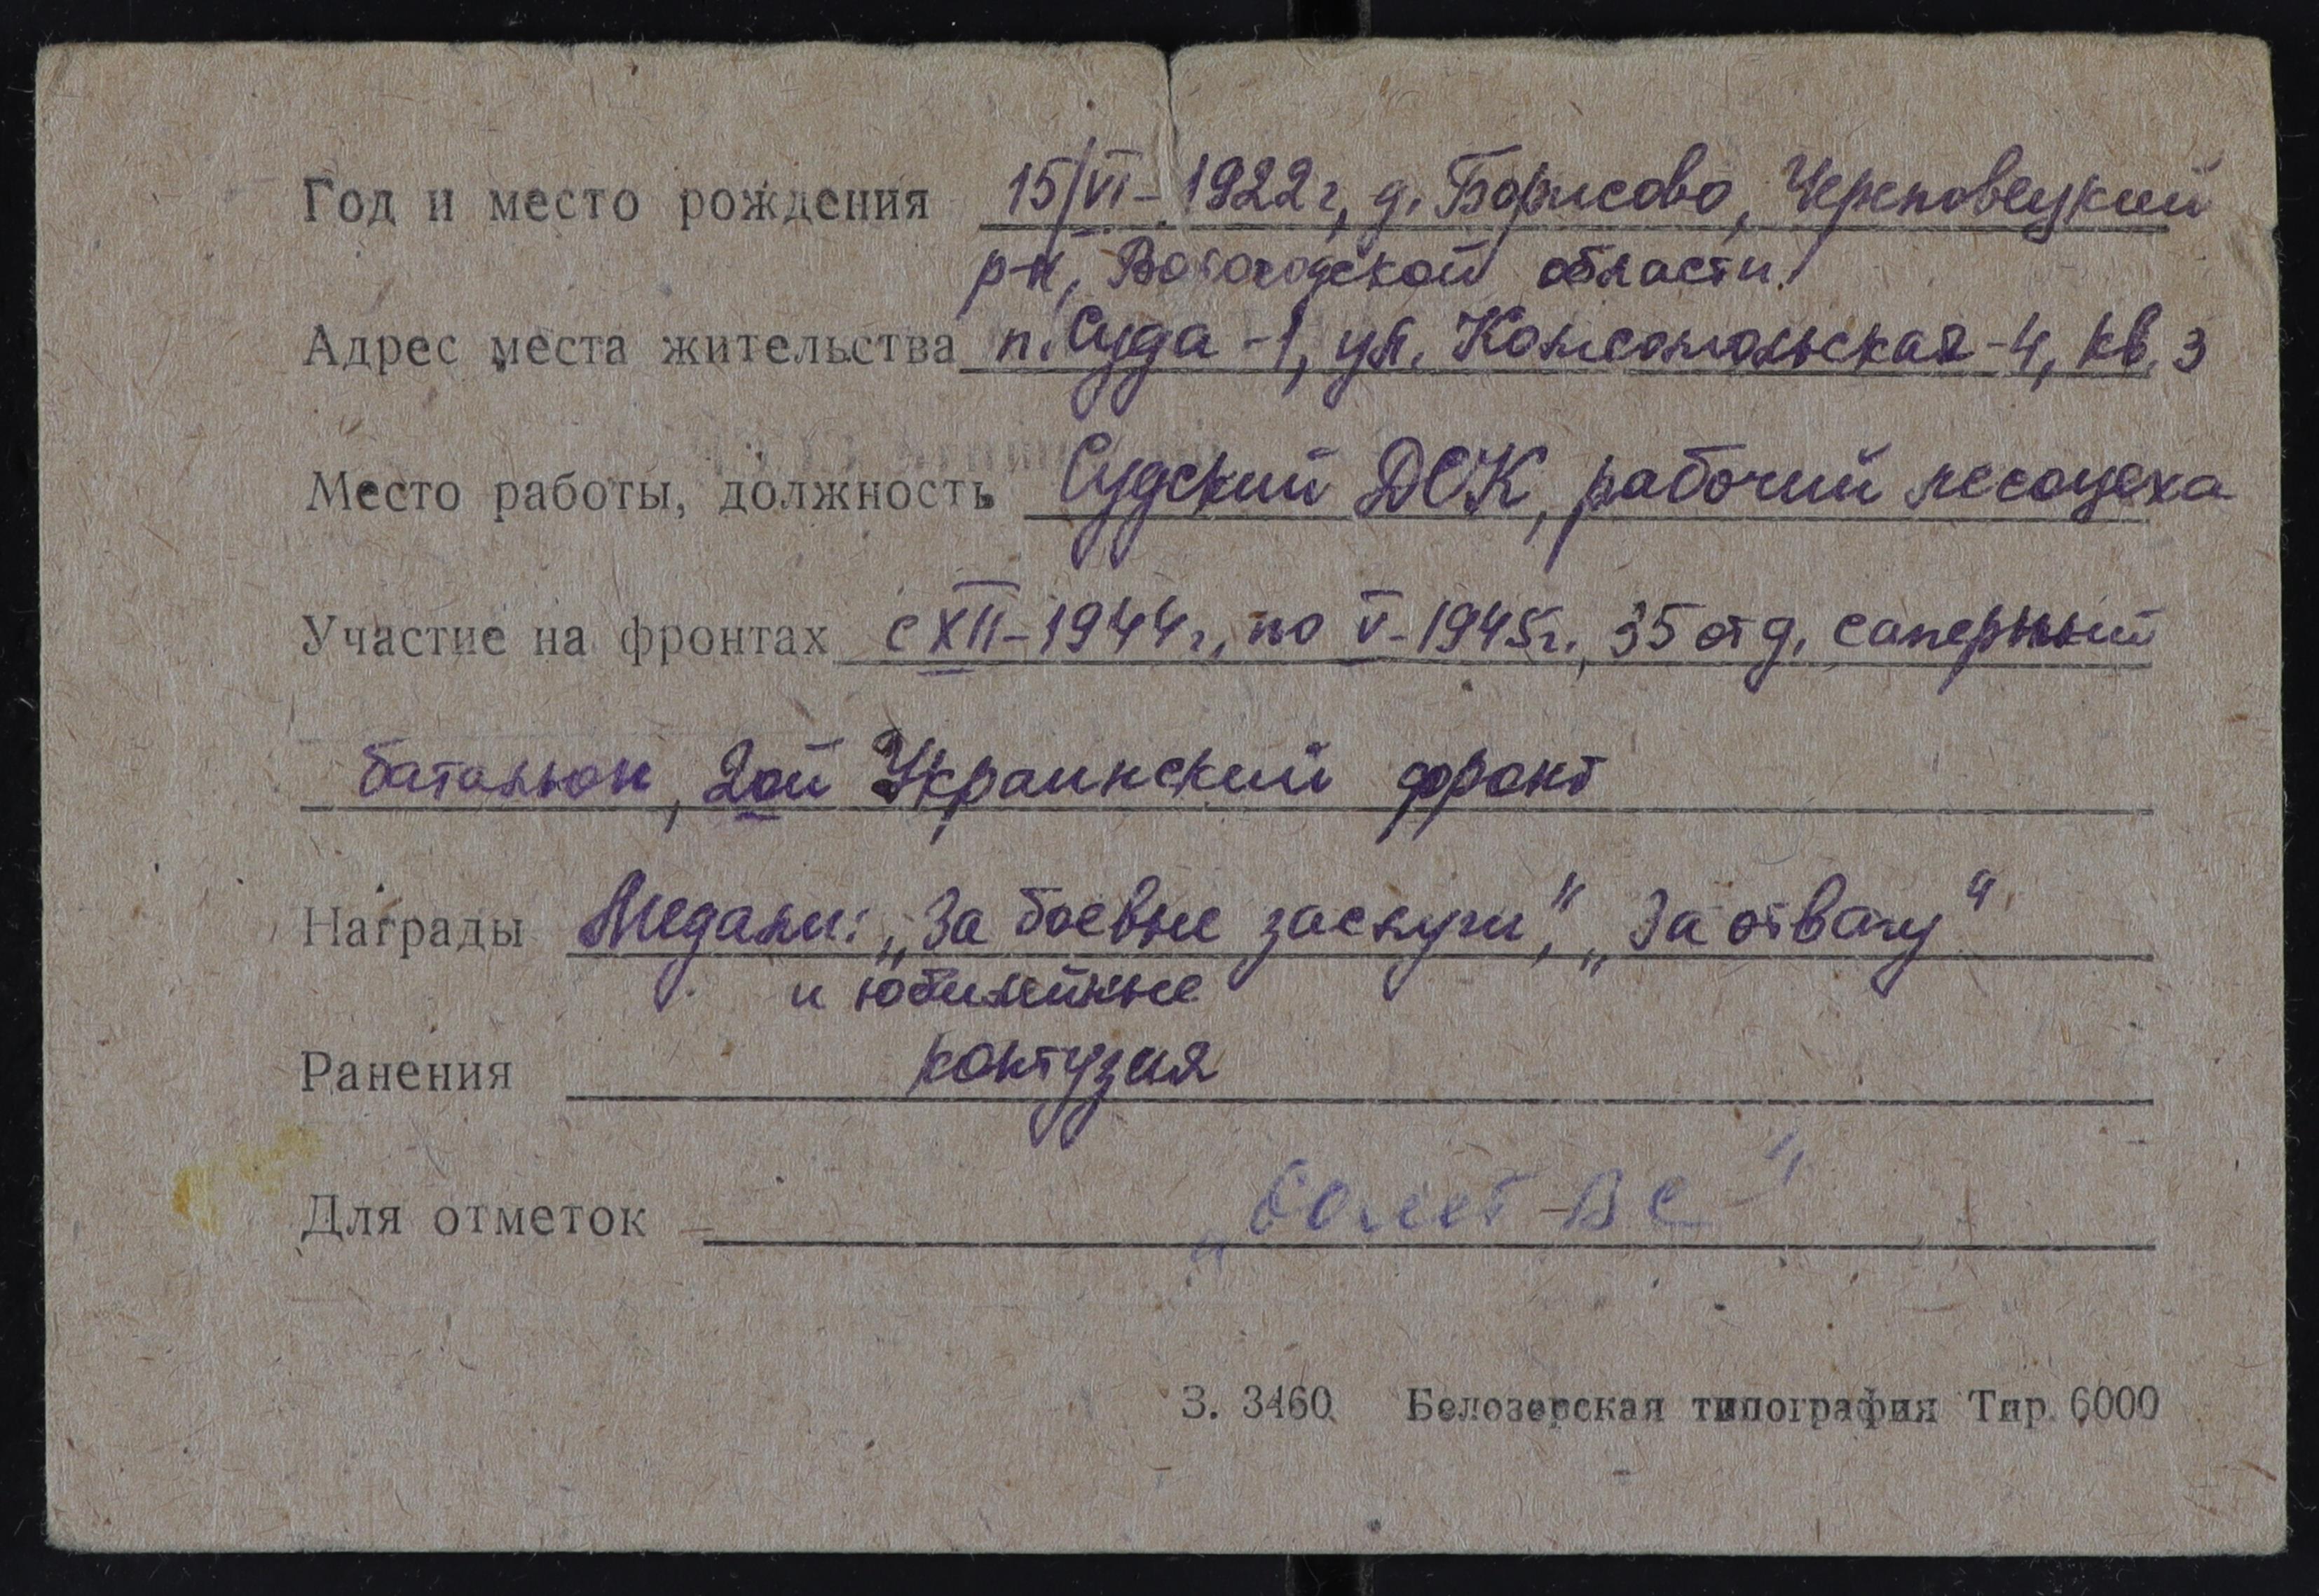 Год и место рождения 15/VI-1922 г, д. Борисово, Череповецкий
р-н, Вологодской области.
Адрес места жительства п. Суда-1, ул. Комсомольская-4, кв. 3
Место работы, должность Судский ДОК, рабочий лесоцеха
Участие на фронтах с XII-1944 г., по V-1945 г., 35 отд. саперный
батальон, 2ой Украинский фронт
Награды Медали: „За боевые заслуги", „За отвагу"
и юбилейные
Ранения контузия
Для отметок
З. 3460 Белозерская типография Тир. 6000